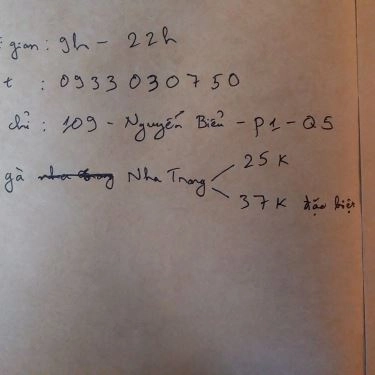 gian : 9h - 22h
t : 0933 030750
chỉ : 109 - Nguyễn Biểu - P1 - Q5
gà nha trang Nha Trang 25K
37K đặc biệt